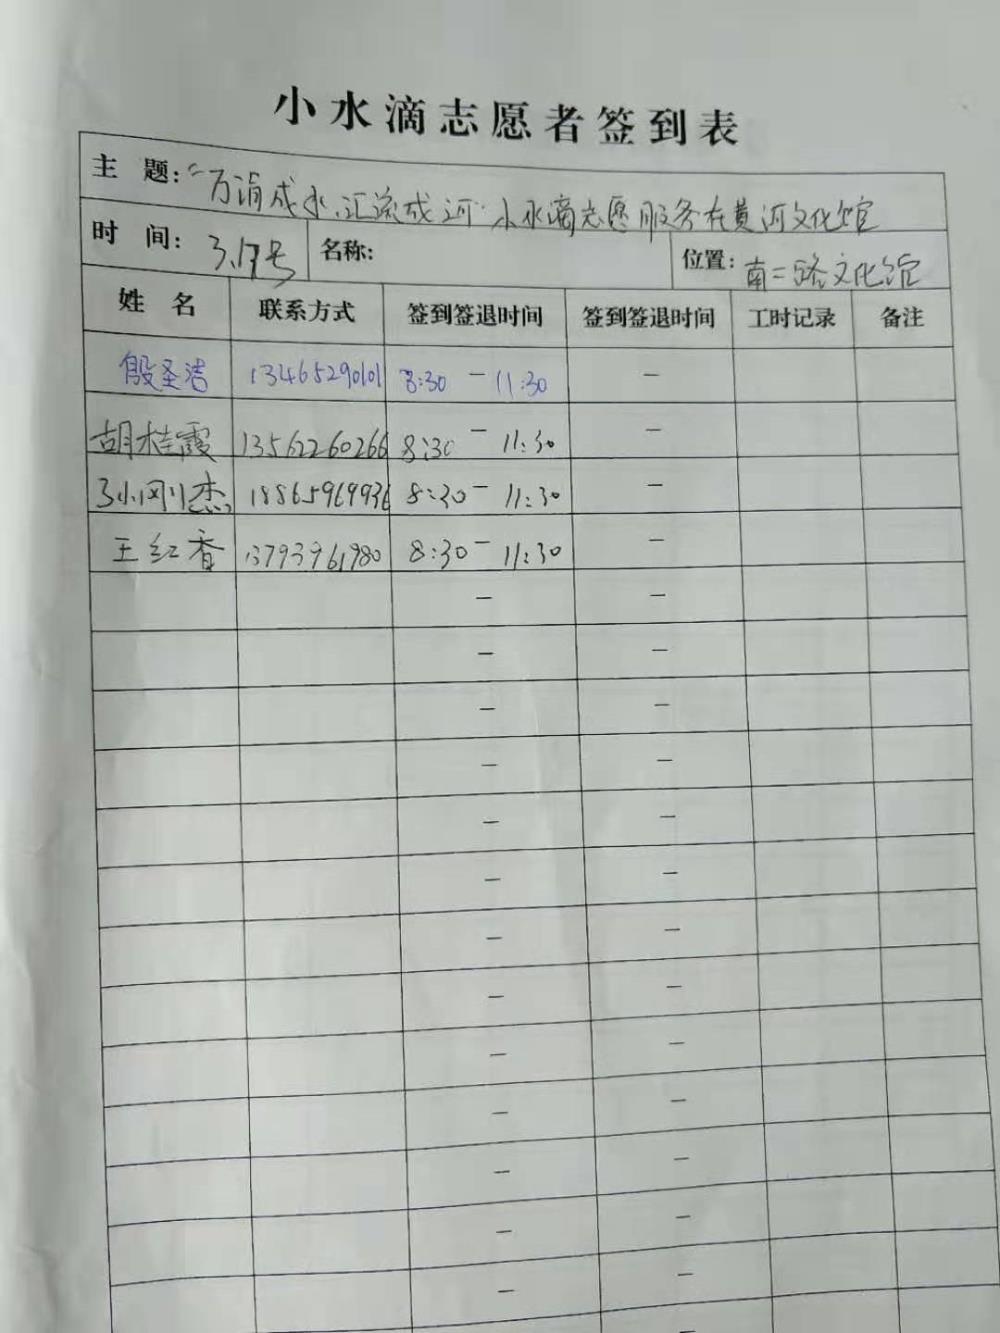 小水滴志愿者签到表
主 题: “万涓成水、汇流成河”小水滴志愿服务在黄河文化馆
时 间: 3.17号 名称: 位置: 南二路文化馆
姓 名 联系方式 签到签退时间 签到签退时间 工时记录 备注
殷圣洁 13465290101 8:30 — 11:30 —
胡桂霞 13562260266 8:30 — 11:30 —
孙刚杰 18865969936 8:30 — 11:30 —
王红香 13793961980 8:30 — 11:30 —
— —
— —
— —
— —
— —
— —
— —
— —
— —
— —
— —
— —
— —
—